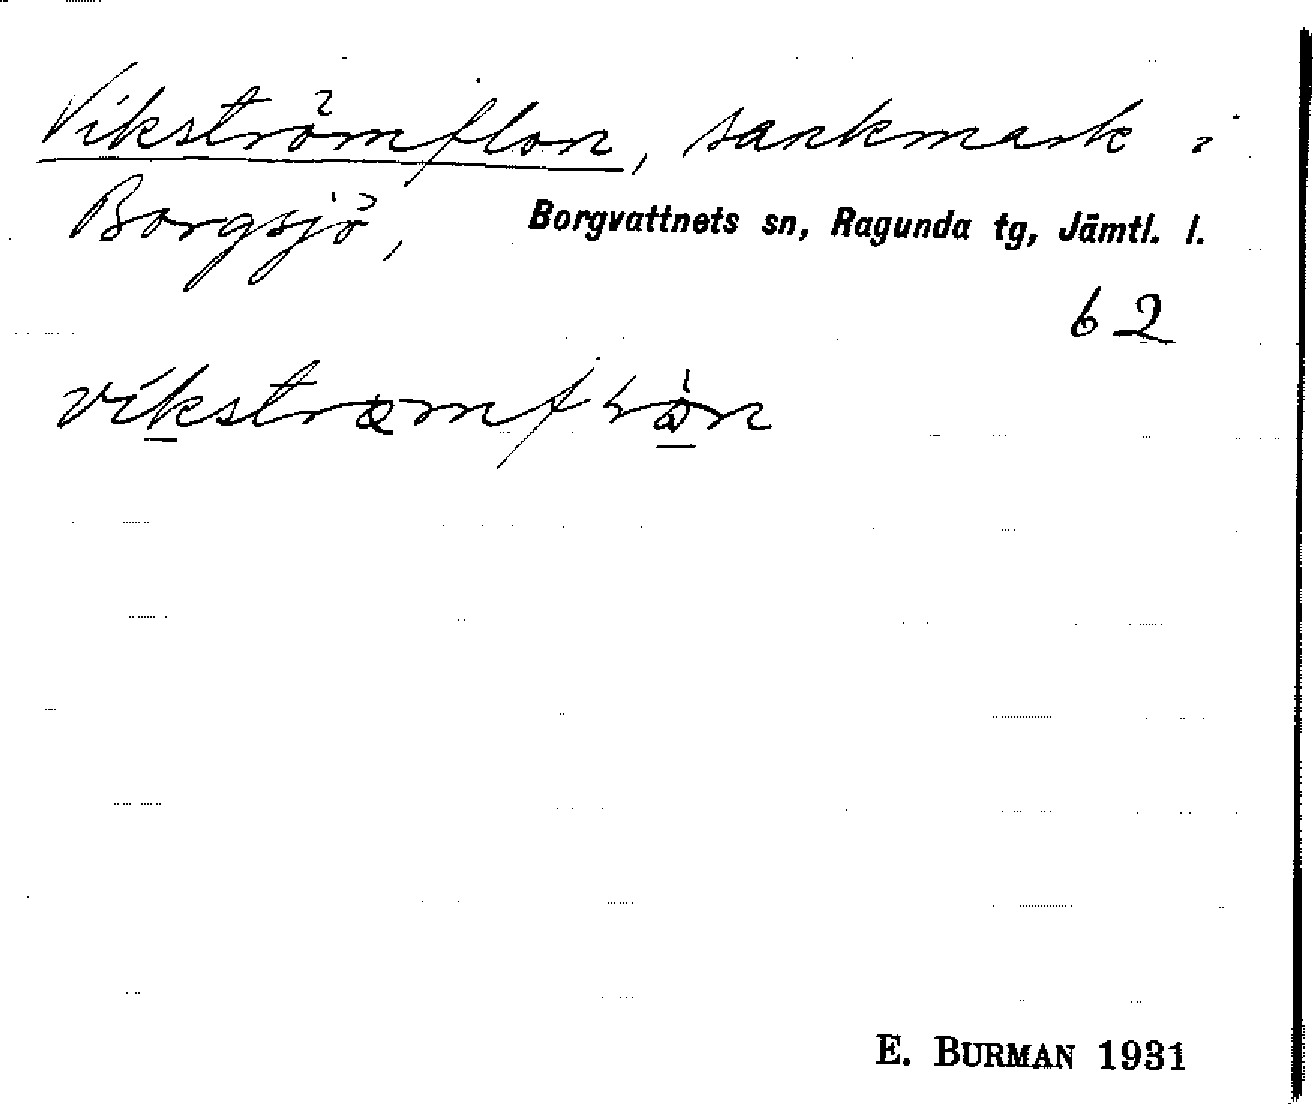 Vikströmflon, sankmark i
Borgsjö, Borgvattnets sn, Ragunda tg, Jämtl. l.
62
E. BURMAN 1931